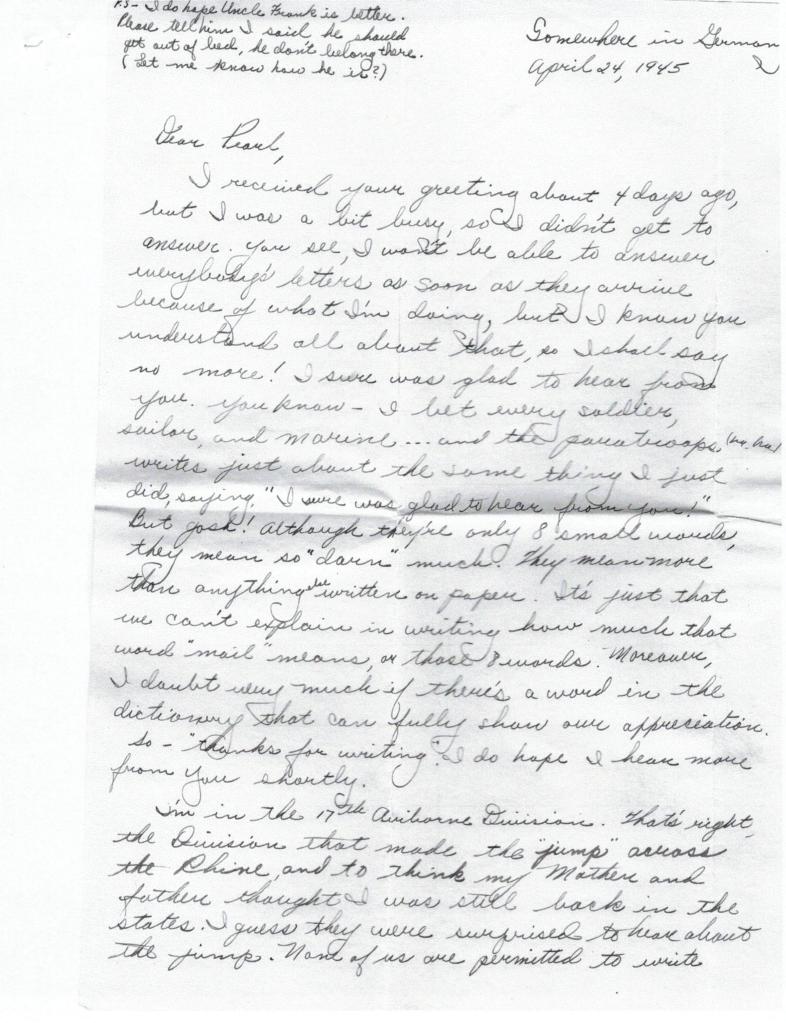 P.S - I do hope Uncle Frank is better.
Please tell him I said he should
get out of bed, he don't belong there.
(Let me know how he is?)
Somewhere in German
y
April 24, 1945
Dear Pearl,
I received your greeting about 4 days ago,
but I was a bit busy, so I didn't get to
answer. You see, I won't be able to answer
everybody's letters as soon as they arrive
because of what I'm doing, but I know you
understand all about that, so I shall say
no more! I sure was glad to hear from
you. You know - I bet every soldier,
sailor, and marine ... and the paratroops,
writes just about the same thing I just
did, saying, "I sure was glad to hear from you!"
But gosh! Although they're only 8 small words,
they mean so "darn" much. They mean more
than anything else written on paper. It's just that
we can't explain in writing how much that
word "mail" means, or those 8 words. Moreover,
I doubt very much if there's a word in the
dictionary that can fully show our appreciation.
So - "thanks for writing". I do hope I hear more
from you shortly.
I'm in the 17th Airborne Division. That's right,
the Division that made the "jump" across
the Rhine, and to think my Mother and
father thought I was still back in the
states. I guess they were surprised to hear about
the jump. None of us are permitted to write